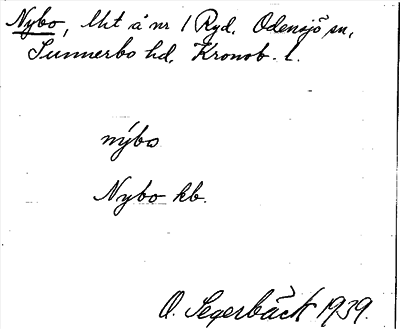 Nybo, lht å nr 1 Ryd, Odensjö sn,
Sunnerbo hd, Kronob. l.
nýbo
Nybo kb.
O. Segerbäck 1939.